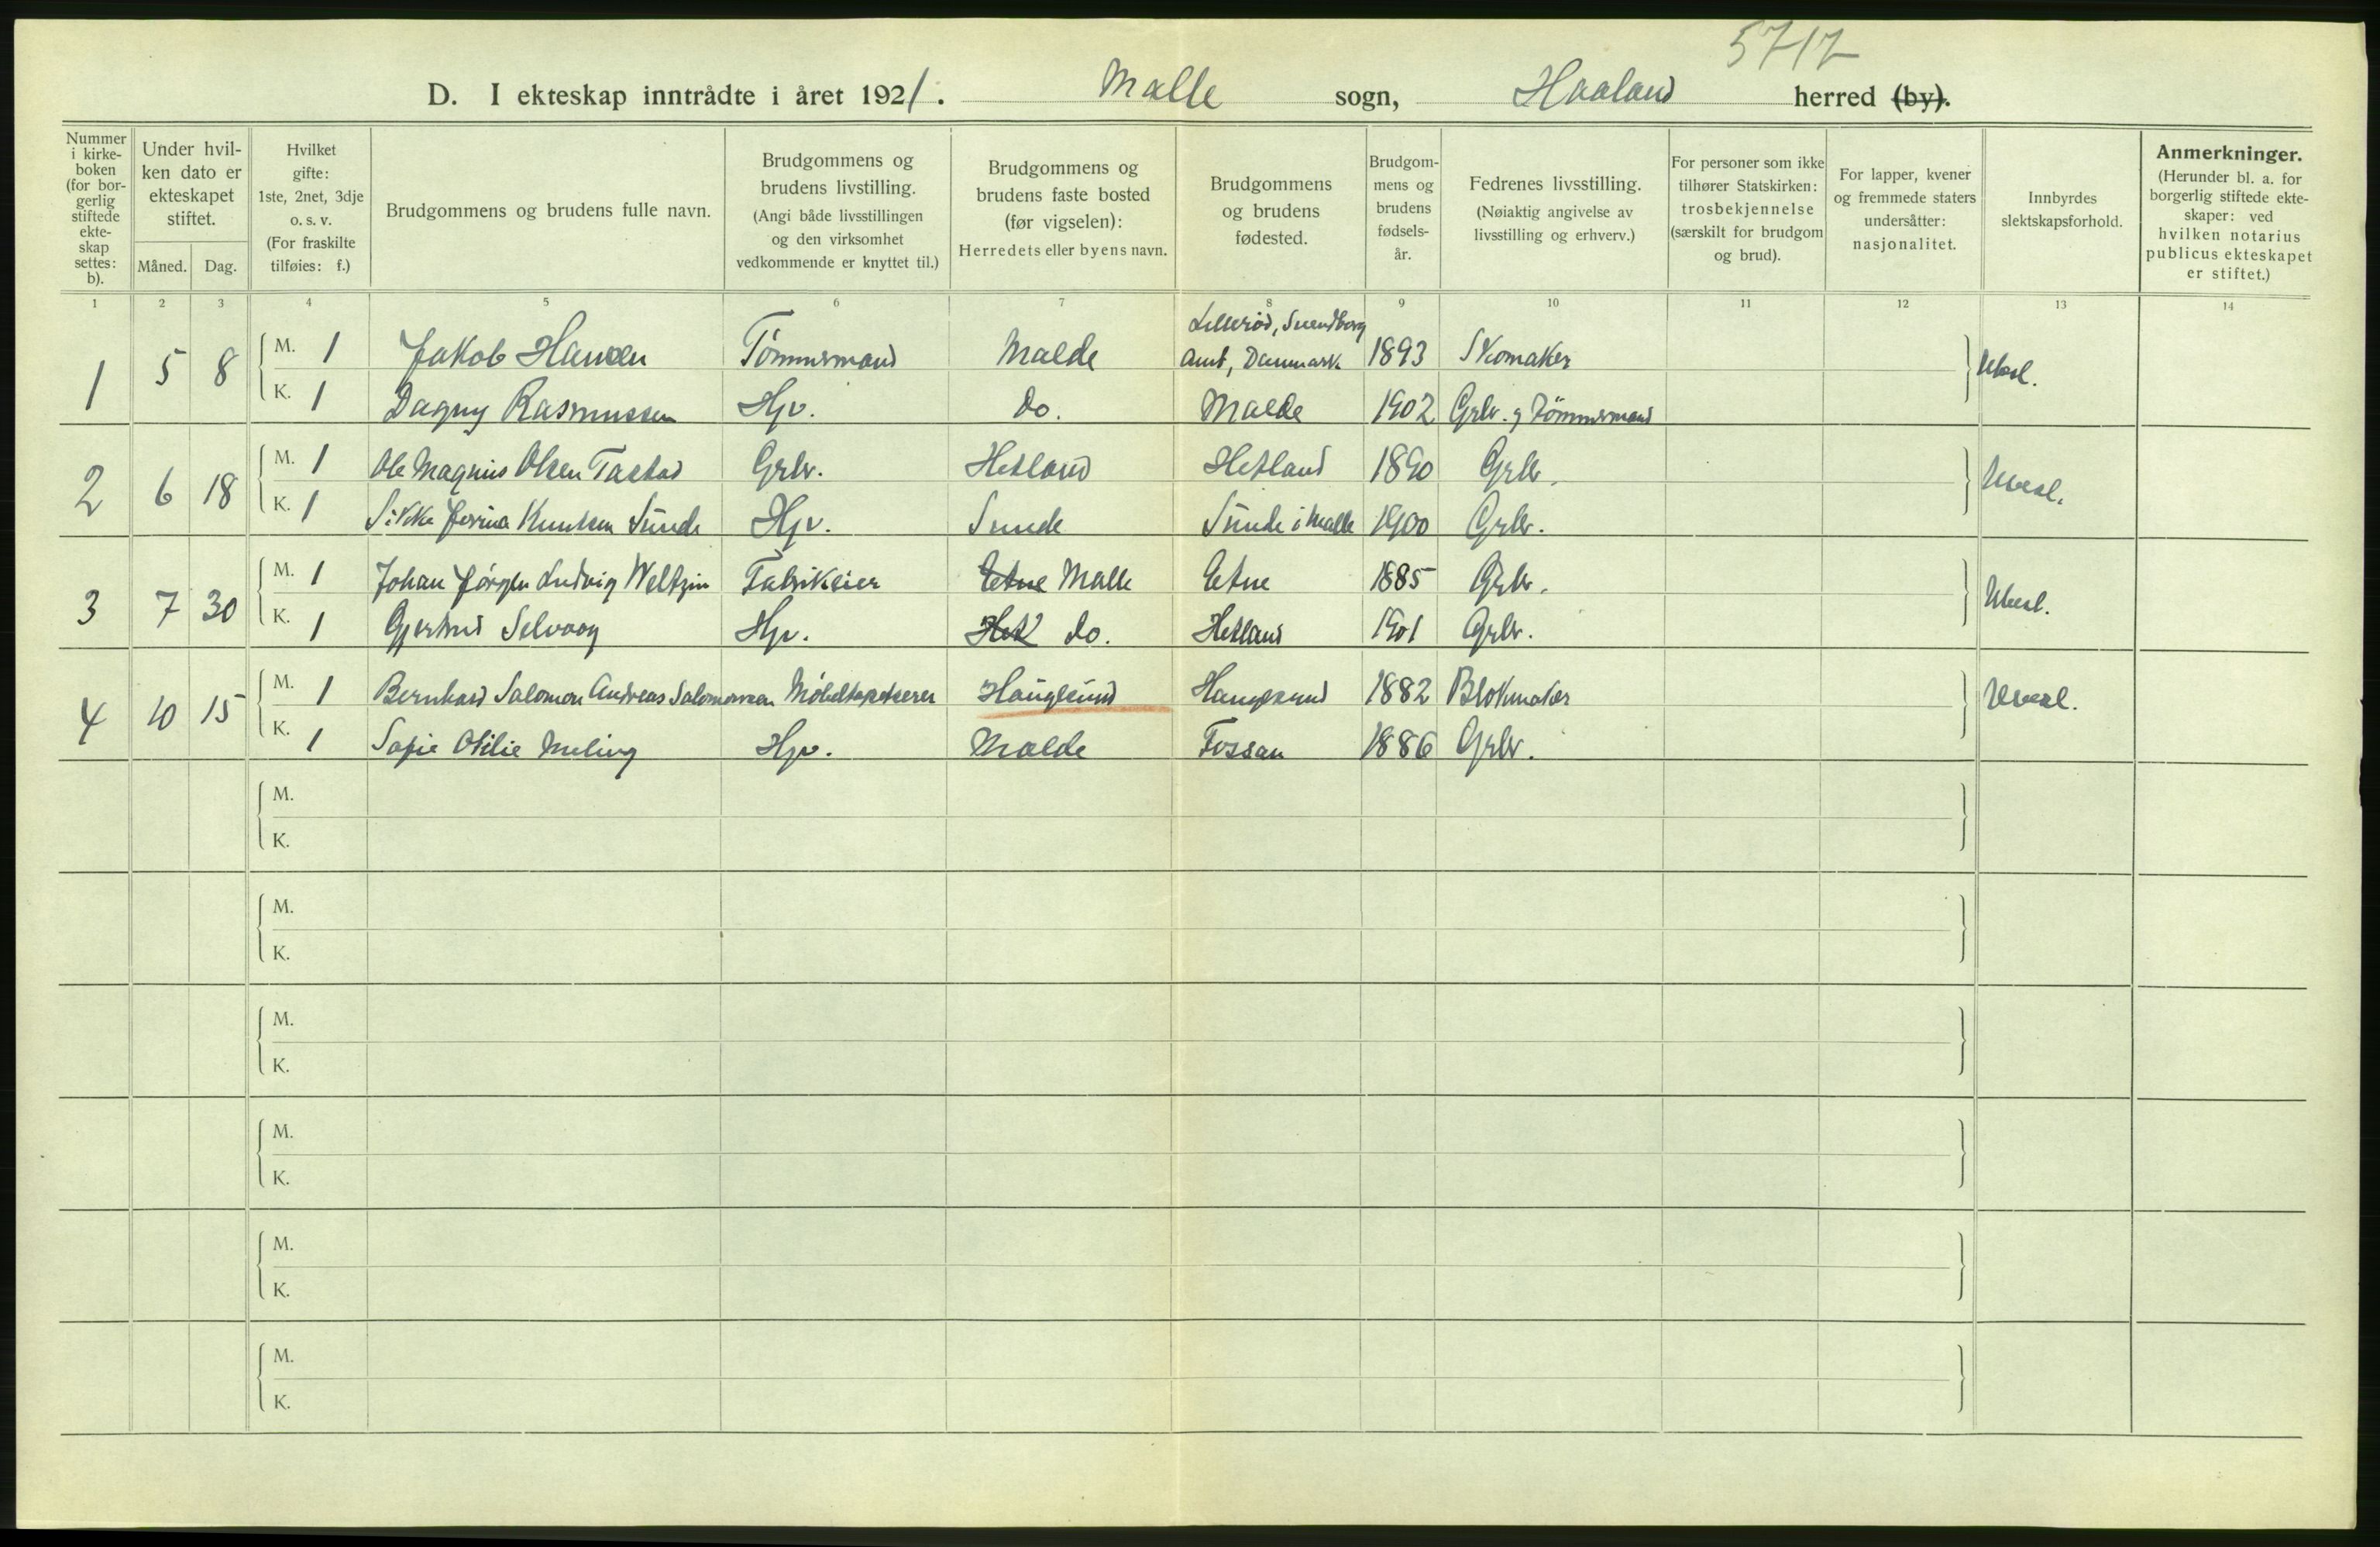 5717
D. I ekteskap inntrådte i året 1921. Malle sogn, Haaland herred (by).
Nummer i kirke-boken (for bor-gerlig stiftede ekte-skap settes: b).
Under hvil-ken dato er ekteskapet stiftet.
Måned. Dag.
Hvilket gifte: 1ste, 2net, 3dje o. s. v. (For fraskilte tilføies: f.)
Brudgommens og brudens fulle navn.
Brudgommens og brudens livstilling. (Angi både livsstillingen og den virksomhet vedkommende er knyttet til.)
Brudgommens og brudens faste bosted (før vigselen): Herredets eller byens navn.
Brudgommens og brudens fødested.
Brudgom-mens og brudens fødsels-år.
Fedrenes livsstilling. (Nøiaktig angivelse av livsstilling og erhverv.)
For personer som ikke tilhører Statskirken: trosbekjennelse (særskilt for brudgom og brud).
For lapper, kvener og fremmede staters undersåtter: nasjonalitet.
Innbyrdes slektskapsforhold.
Anmerkninger. (Herunder bl. a. for borgerlig stiftede ekte-skaper: ved hvilken notarius publicus ekteskapet er stiftet.)
1 2 3 4 5 6 7 8 9 10 11 12 13 14
1 5 8 M. 1 Jakob Hansen Tømmermand Malde Lillerød, Svendborg Amt, Danmark 1893 Skomaker Ubesl.
K. 1 Dagny Rasmussen Hjv. do. Malde 1902 Grbr. og Tømmermand
2 6 18 M. 1 Ole Magnus Olsen Tastad Grbr. Hetland Hetland 1890 Grbr. Ubesl.
K. 1 Sikke Serina Knutsen Sunde Hjv. Sunde Sunde i Malle 1900 Grbr.
3 7 30 M. 1 Johan Jørgen Ludvig Weltzin Fabrikeier Etne Malle Etne 1885 Grbr. Ubesl.
K. 1 Gjertrud Selvaag Hjv. Het do. Hetland 1901 Grbr.
4 10 15 M. 1 Bernhard Salomon Andreas Salomonsen Møbeltapetserer Haugesund Haugesund 1882 Blokmaker Ubesl.
K. 1 Sofie Otilie Meling Hjv. Malde Fossan 1886 Grbr.
M.
K.
M.
K.
M.
K.
M.
K.
M.
K.
M.
K.